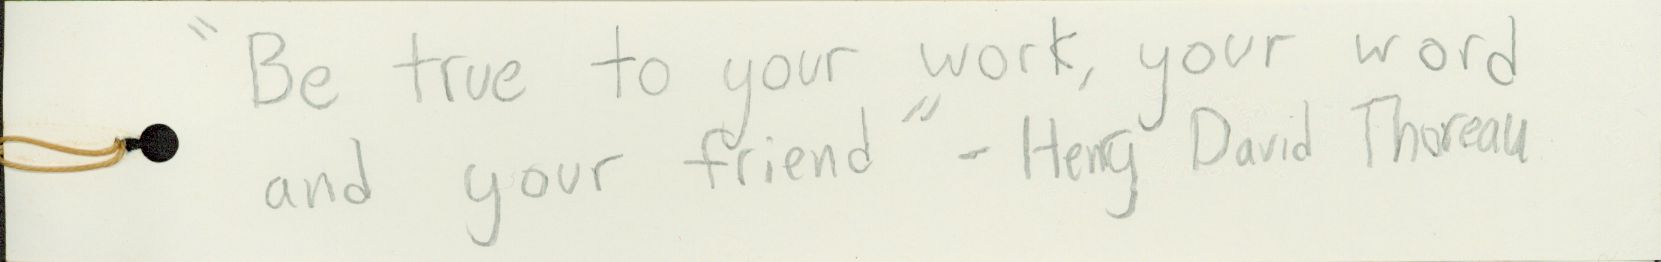 "Be true to your work, your word
and your friend" - Henry David Thoreau